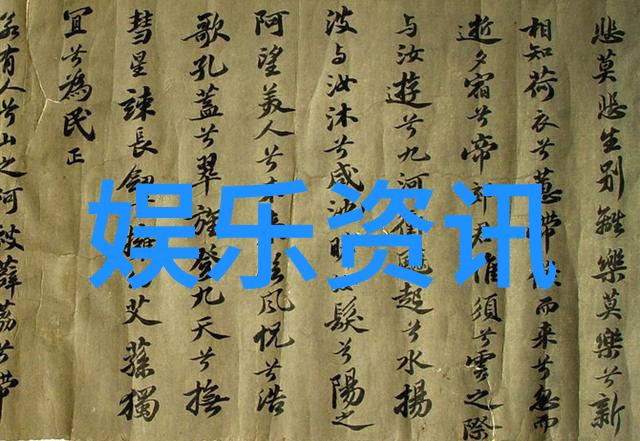 悲莫悲生别離樂莫樂兮新
相知荷衣兮蕙帶而来兮忽而
逝夕宿兮帝郊君谁須兮雲之際
与汝遊兮九河飈起兮水揚
波与汝沐兮咸池晞髮兮陽之
阿望美人兮未风怳兮浩
歌孔蓋兮翠旍登九天兮撫
彗星竦長劒擁艾蓀獨
宜兮為民正
若有人兮山之阿被薜荔兮帶
娱乐资讯